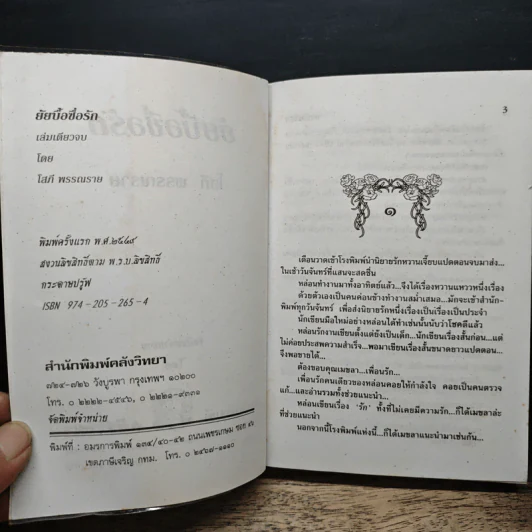 ยัยบื้อซื่อรัก
เล่มเดียวจบ
โดย
โสภี พรรณราย
พิมพ์ครั้งแรก พ.ศ.๒๕๔๙
สงวนลิขสิทธิ์ตาม พ.ร.บ.ลิขสิทธิ์
กระดาษปรู๊ฟ
ISBN 974-205-265-4
สำนักพิมพ์คลังวิทยา
๗๒๔-๗๒๖ วังบูรพา กรุงเทพฯ ๑๐๒๐๐
โทร. ๐ ๒๒๒๑-๔๕๔๖, ๐ ๒๒๒๑-๙๓๓๑
จัดพิมพ์จำหน่าย
พิมพ์ที่ : อมรการพิมพ์ ๑๓๔/๔๐-๔๒ ถนนเพชรเกษม ซอย ๔๖
เขตภาษีเจริญ กทม. โทร. ๐ ๒๔๖๗-๑๑๑๐
3
๑
เดือนวาดเข้าโรงพิมพ์นำนิยายรักหวานเจี๊ยบแปดตอนจบมาส่ง...
ในเช้าวันจันทร์ที่แสนจะสดชื่น
หล่อนทำงานมาทั้งอาทิตย์แล้ว...จึงได้เรื่องหวานแหววหนึ่งเรื่อง
ด้วยตัวเองเป็นคนค่อนข้างทำงานสม่ำเสมอ...มักจะเข้าสำนัก-
พิมพ์ทุกวันจันทร์ เพื่อส่งนิยายรักหนึ่งเรื่องเป็นเรื่องเป็นประจำ
นักเขียนมือใหม่อย่างหล่อนได้ทำเช่นนั้นนับว่าโชคดีแล้ว
หล่อนรักงานเขียนตั้งแต่ยังเป็นเด็ก...นักเขียนเรื่องสั้นก่อน...แต่
ไม่ค่อยประสพความสำเร็จ...พอมาเขียนเรื่องสั้นขนาดยาวแปดตอน...
จึงพอขายได้...
ต้องขอบคุณเมขลา...เพื่อนรัก...
เพื่อนรักคนเดียวของหล่อนคอยให้กำลังใจ คอยเป็นคนตรวจ
แก้...และอ่านรวมทั้งช่วยแนะนำ...
หล่อนเขียนเรื่อง 'รัก' ทั้งที่ไม่เคยมีความรัก...ก็ได้เมขลาล่ะ
ที่ช่วยแนะนำ...
นอกจากนี้โรงพิมพ์แห่งนี้...ก็ได้เมขลาแนะนำมาเช่นกัน...